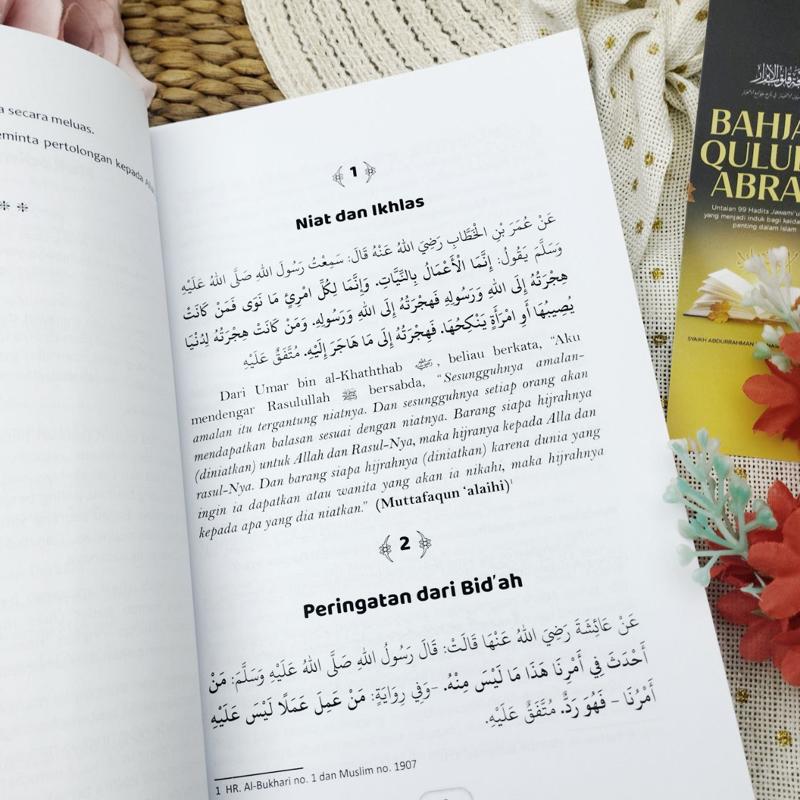 a secara meluas.
eminta pertolongan kepada Alla
1
Niat dan Ikhlas
عَنْ عُمَرَ بْنِ الْخَطَّابِ رَضِيَ اللهُ عَنْهُ قَالَ: سَمِعْتُ رَسُولَ اللهِ صَلَّى اللهُ عَلَيْهِ
وَسَلَّمَ يَقُولُ: إِنَّمَا الْأَعْمَالُ بِالنِّيَّاتِ. وَإِنَّمَا لِكُلِّ امْرِئٍ مَا نَوَى فَمَنْ كَانَتْ
هِجْرَتُهُ إِلَى اللهِ وَرَسُولِهِ فَهِجْرَتُهُ إِلَى اللهِ وَرَسُولِهِ. وَمَنْ كَانَتْ هِجْرَتُهُ لِدُنْيَا
يُصِيبُهَا أَوِ امْرَأَةٍ يَنْكِحُهَا، فَهِجْرَتُهُ إِلَى مَا هَاجَرَ إِلَيْهِ. مُتَّفَقٌ عَلَيْهِ
Dari Umar bin al-Khaththab ﵁, beliau berkata, "Aku
mendengar Rasulullah ﷺ bersabda, "Sesungguhnya amalan-
amalan itu tergantung niatnya. Dan sesungguhnya setiap orang akan
mendapatkan balasan sesuai dengan niatnya. Barang siapa hijrahnya
(diniatkan) untuk Allah dan Rasul-Nya, maka hijranya kepada Alla dan
rasul-Nya. Dan barang siapa hijrahnya (diniatkan) karena dunia yang
ingin ia dapatkan atau wanita yang akan ia nikahi, maka hijrahnya
kepada apa yang dia niatkan." (Muttafaqun 'alaihi)¹
2
Peringatan dari Bid'ah
عَنْ عَائِشَةَ رَضِيَ اللهُ عَنْهَا قَالَتْ: قَالَ رَسُولُ اللهِ صَلَّى اللهُ عَلَيْهِ وَسَلَّمَ: مَنْ
أَحْدَثَ فِي أَمْرِنَا هَذَا مَا لَيْسَ مِنْهُ. –وَفِي رِوَايَةٍ: مَنْ عَمِلَ عَمَلًا لَيْسَ عَلَيْهِ
أَمْرُنَا – فَهُوَ رَدٌّ. مُتَّفَقٌ عَلَيْهِ.
1 HR. Al-Bukhari no. 1 dan Muslim no. 1907
BAHJA
QULU
ABRA
Untaian 99 Hadits Jawami'u
yang menjadi induk bagi kaida
penting dalam Islam
SYAIKH ABDURRAHMAN